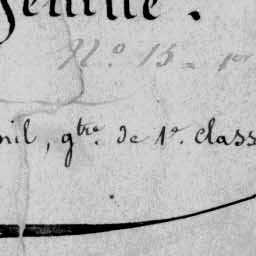 femme.
N.º 15 = 1er
nil, gtre. de 1e. class